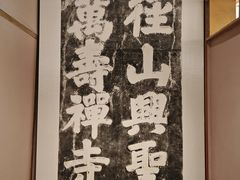 径山興聖
萬壽禪寺